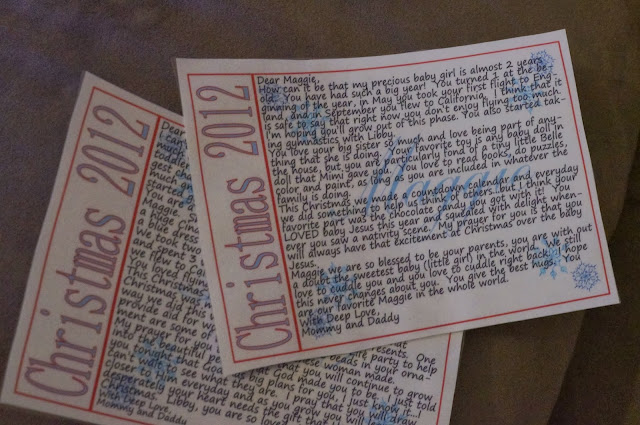 Christmas 2012
Dear Maggie,
How can it be that my precious baby girl is almost 2 years
old. You have had such a big year! You turned 1 at the be-
ginning of the year, in May you took your first flight to Eng-
land, and in September you flew to California. I think that it
is safe to say that right now you don't enjoy flying too much.
I'm hoping you'll grow out of this phase. You also started tak-
ing gymnastics with Libby.
You love your big sister so much and love being part of any-
thing that she is doing. Your favorite toy is any baby doll in
the house, but you are particularly fond of a tiny little Belle
doll that Mimi gave you. You love to read books, do puzzles,
color and paint, as long as you are included in whatever the
family is doing.
This Christmas we made a countdown calender and everyday
we did something to help us think of others...but I think your
favorite part was the chocolate candy you got with it! You
LOVED baby Jesus this year and squealed with delight when-
ever you saw a nativity scene. My prayer for you is that you
will always have that excitement at Christmas over the baby
Jesus.
Maggie we are so blessed to be your parents, you are with out
a doubt the sweetest baby (little girl) in the world. We still
love to cuddle you and you love to cuddle right back. I hope
this never changes about you. You give the best hugs. You
are our favorite Maggie in the whole world.
With Deep Love,
Mommy and Daddy
Maggie
Christmas 2012
Dear
toddle
gest ch
started
You are
Maggie.
a blue dress
we took
and spent 3
we flew to
You loved flying
This Christmas
Christmas was
way we did this
provide aid for
ment are some of
My prayer for
into the beautiful
you tonight that God made you to be. I just told
can't wait to see what they are. I pray that you will draw
closer to Him everyday and as you grow you will
desperately your heart needs the gift that
Christmas. Libby, you are so loved
With Deep Love,
Mommy and Daddy